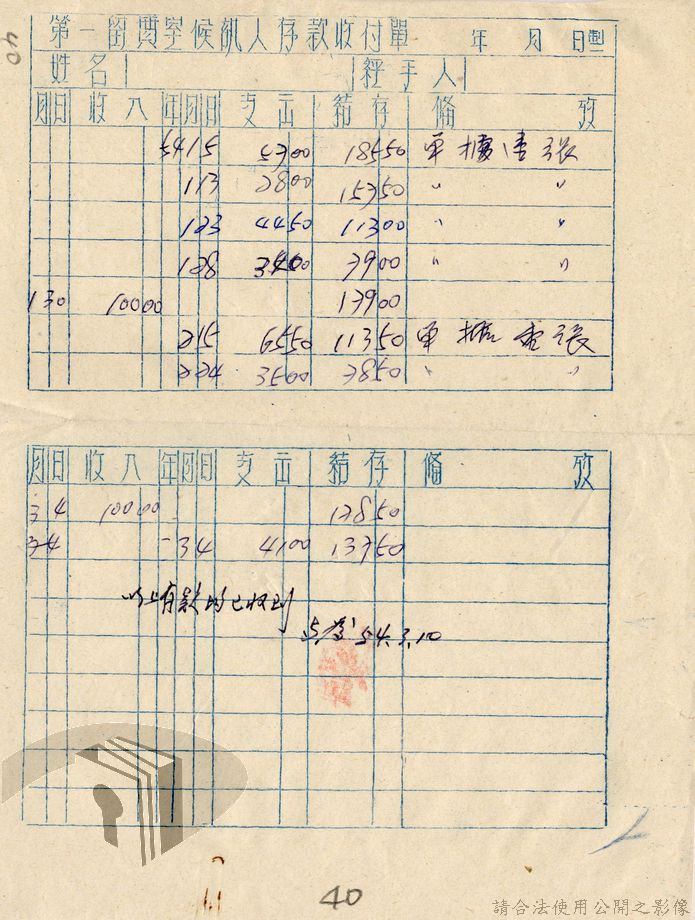 40
第一留置室候訊人存款收付單 年 月 日製
姓名 經手人
月 日 收入 年 月 日 支出 結存 備 攷
54 1 5 5700 18550 單據 張
1 13 2800 15750 〃 〃
1 23 4450 11300 〃 〃
1 28 3400 7900 〃 〃
1 30 10000 17900
2 15 6550 11350 單據 張
2 24 3500 7850 〃
月 日 收入 年 月 日 支出 結存 備 攷
3 4 10000 17850
3 4 4100 13750
以上存款均已收到
54.3.10
40
請合法使用公開之影像